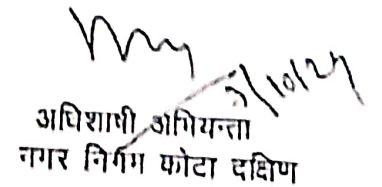 3/10/24
अधिशाषी अभियन्ता
नगर निगम कोटा दक्षिण